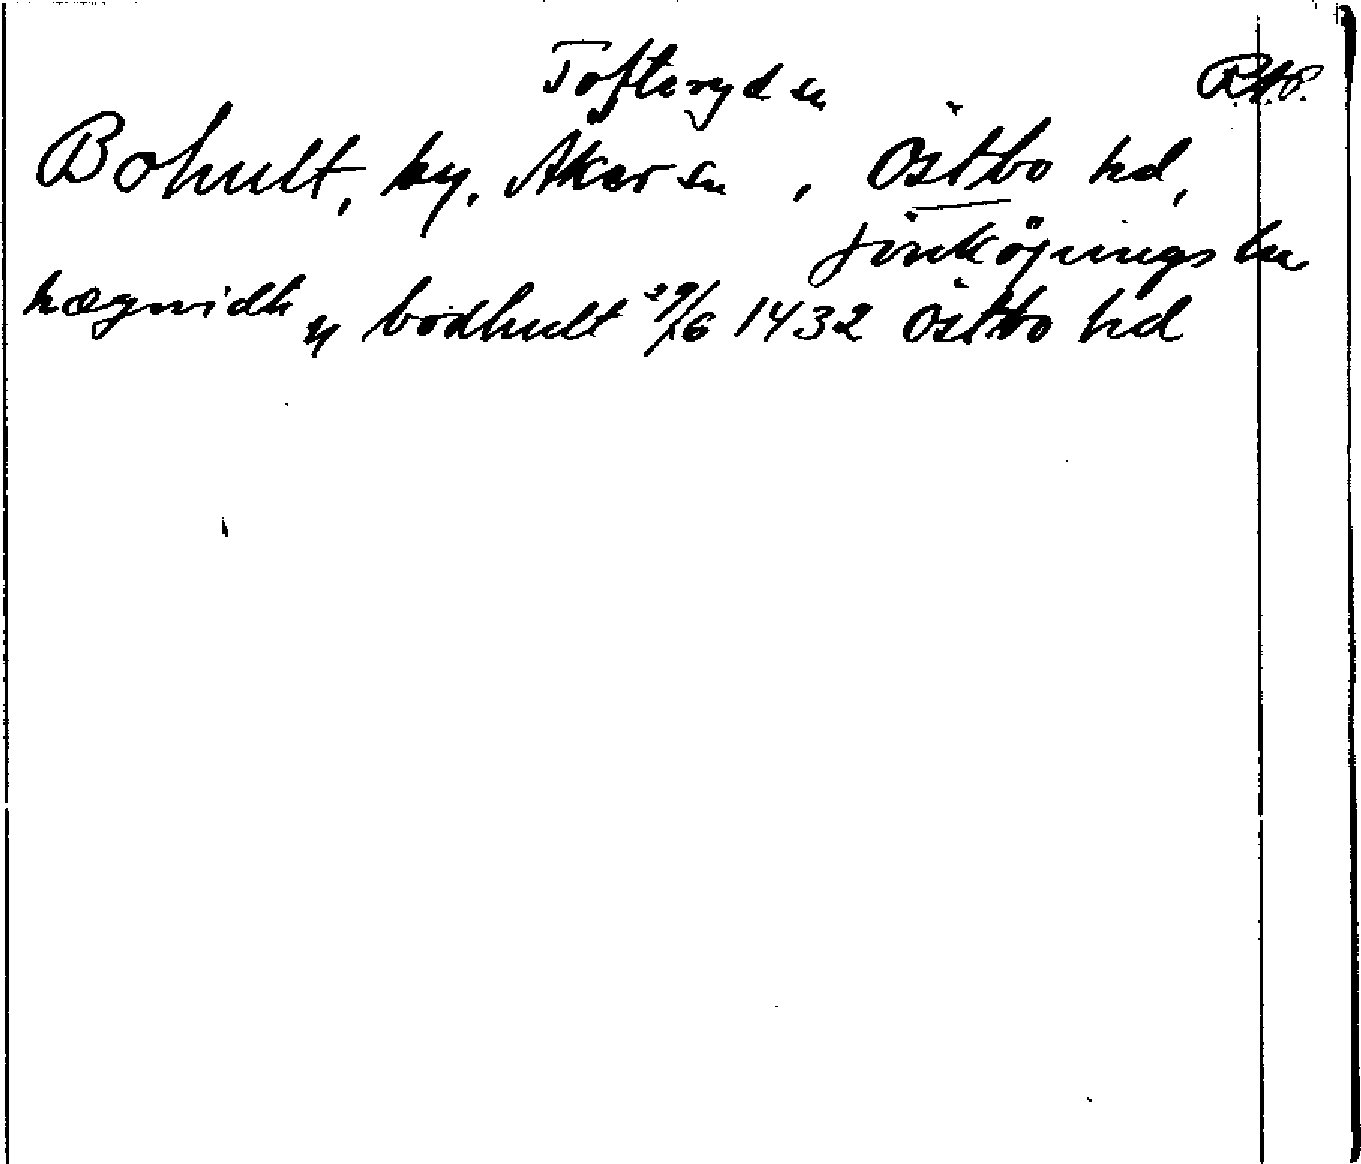 Tofteryd sn
R.A.P.
Bohult, by, Åker sn, Östbo hd,
Jönköpings län
hægnidh y bodhult 29/6 1432 Östbo hd